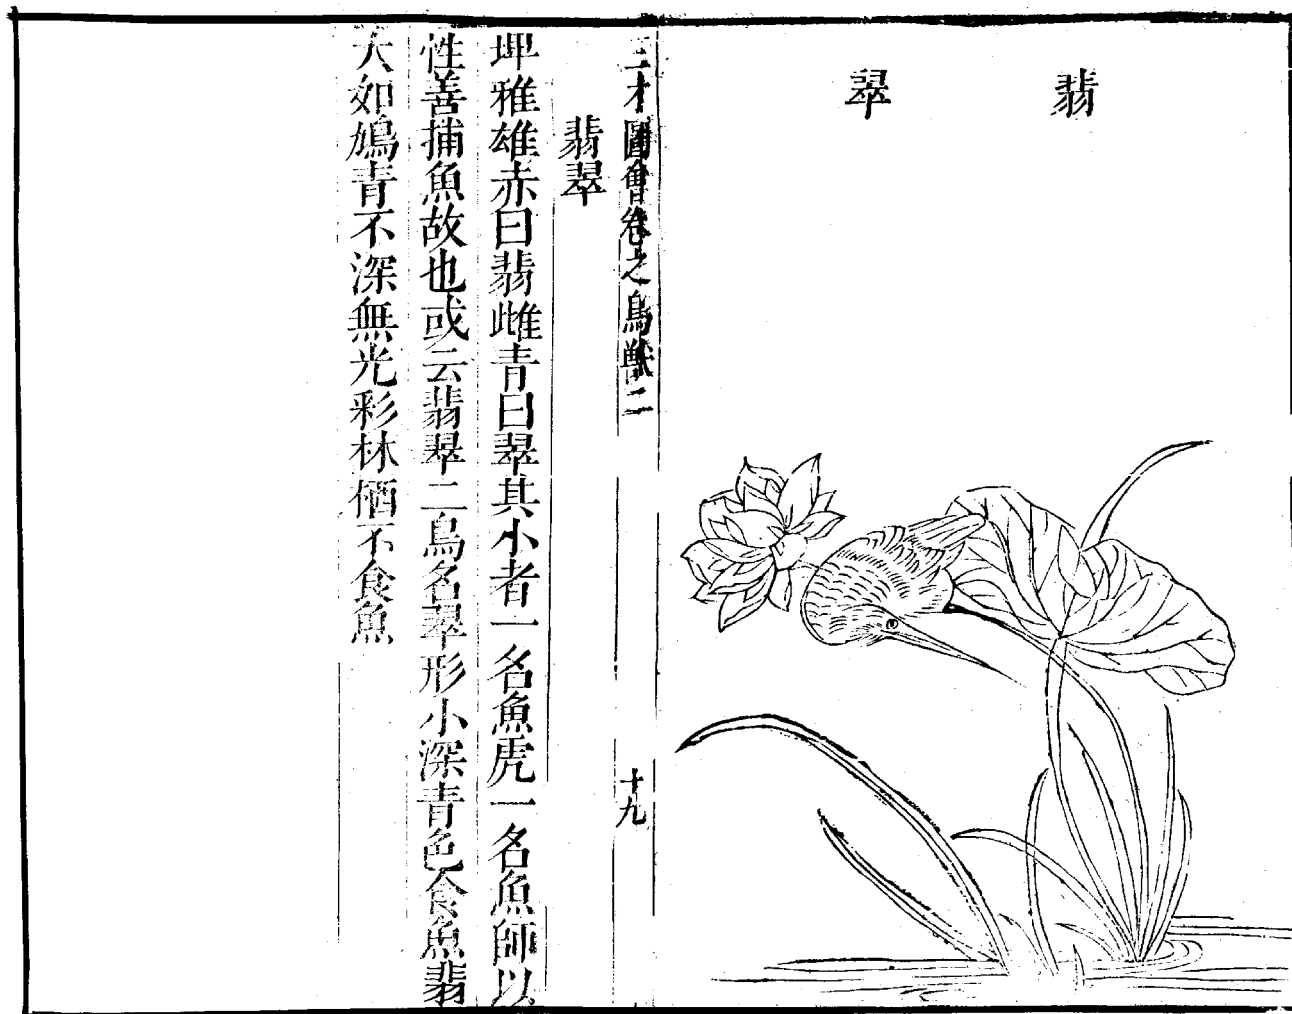 翡翠
三才圖會卷之鳥獸二
十九
翡翠
埤雅雄赤曰翡雌青曰翠其小者一名魚虎一名魚師以
性善捕魚故也或云翡翠二鳥名翠形小深青色食魚翡
大如鳩青不深無光彩林栖不食魚